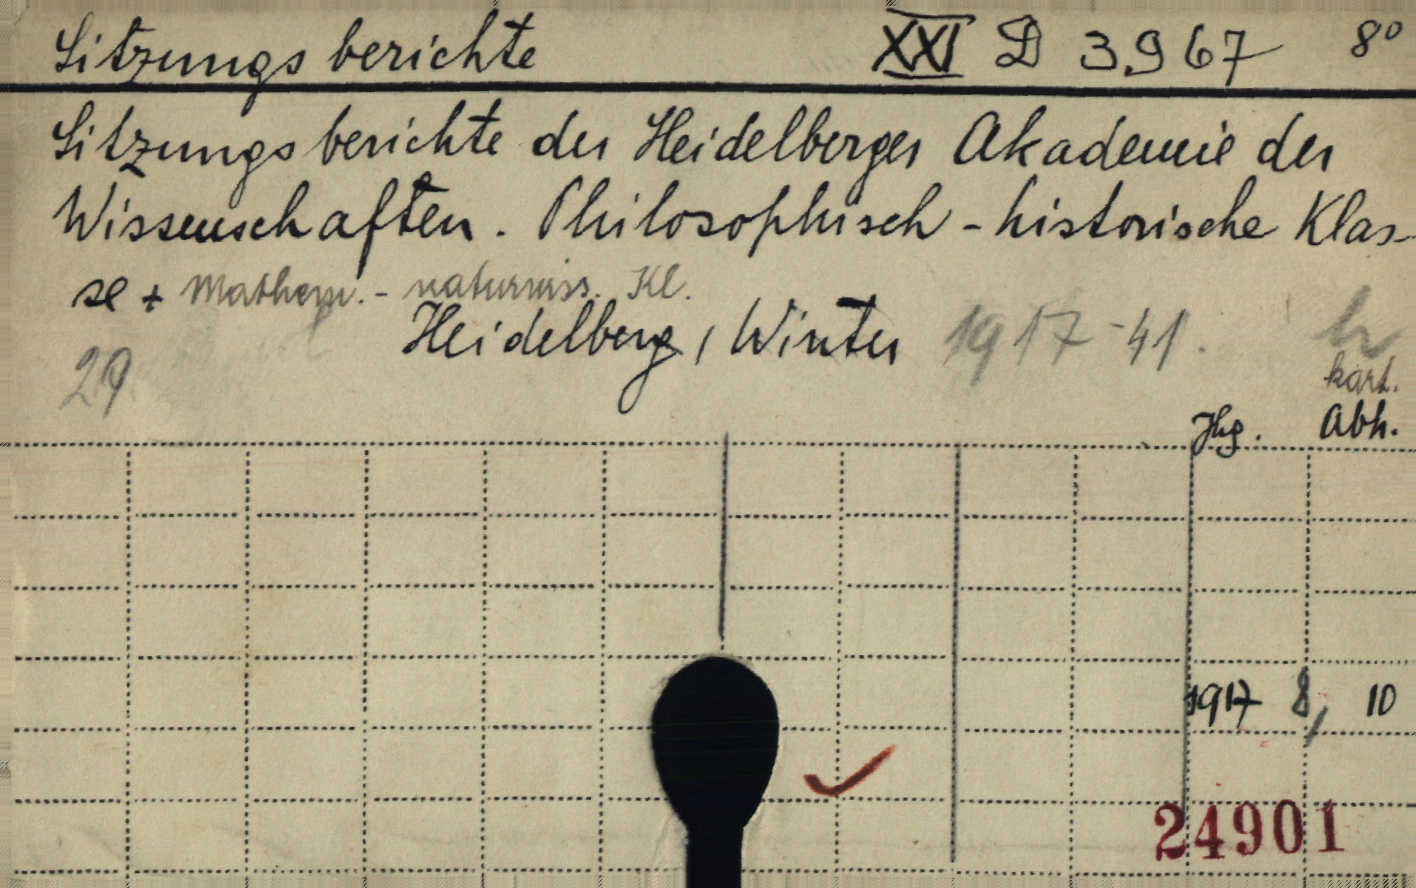 Sitzungsberichte XXI D 3967 8°
Sitzungsberichte der Heidelberger Akademie der
Wissenschaften. Philosophisch-historische Klas-
se + Mathem.-naturwiss. Kl.
Heidelberg, Winter 1917-41.
29 kart.
Jhg. Abh.
1917 8, 10
24901